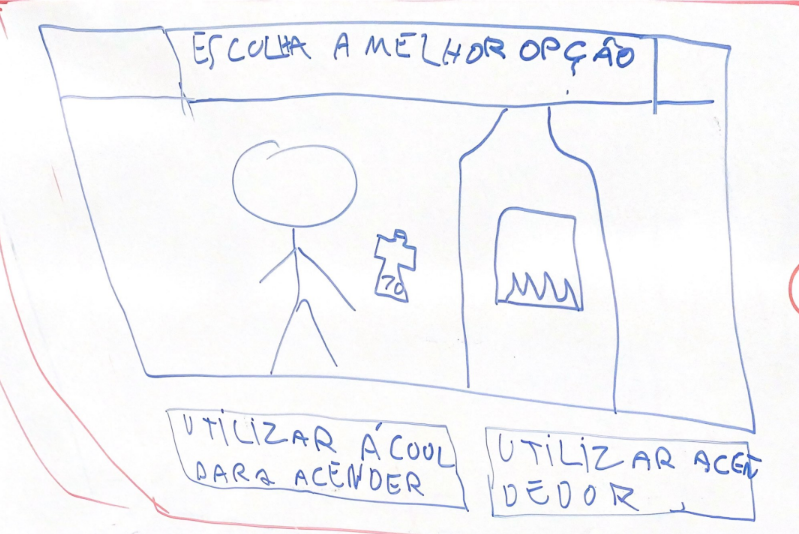 ESCOLHA A MELHOR OPÇÃO
70
UTILIZAR ÁCOOL
PARA ACENDER
UTILIZAR ACEN
DEDOR